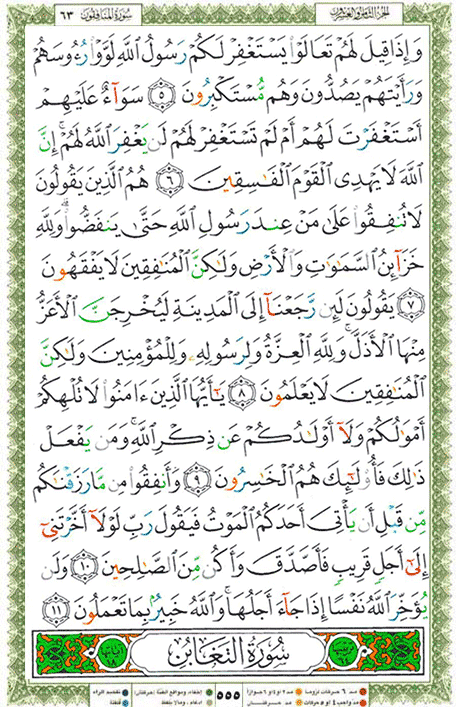 سورة المنافقون ٦٣
الجزء الثامن والعشرون
وَإِذَا قِيلَ لَهُمْ تَعَالَوْا۟ يَسْتَغْفِرْ لَكُمْ رَسُولُ ٱللَّهِ لَوَّوْا۟ رُءُوسَهُمْ
وَرَأَيْتَهُمْ يَصُدُّونَ وَهُم مُّسْتَكْبِرُونَ ٥ سَوَآءٌ عَلَيْهِمْ
أَسْتَغْفَرْتَ لَهُمْ أَمْ لَمْ تَسْتَغْفِرْ لَهُمْ لَن يَغْفِرَ ٱللَّهُ لَهُمْ ۚ إِنَّ
ٱللَّهَ لَا يَهْدِى ٱلْقَوْمَ ٱلْفَـٰسِقِينَ ٦ هُمُ ٱلَّذِينَ يَقُولُونَ
لَا تُنفِقُوا۟ عَلَىٰ مَنْ عِندَ رَسُولِ ٱللَّهِ حَتَّىٰ يَنفَضُّوا۟ ۗ وَلِلَّهِ
خَزَآئِنُ ٱلسَّمَـٰوَٰتِ وَٱلْأَرْضِ وَلَـٰكِنَّ ٱلْمُنَـٰفِقِينَ لَا يَفْقَهُونَ
٧ يَقُولُونَ لَئِن رَّجَعْنَآ إِلَى ٱلْمَدِينَةِ لَيُخْرِجَنَّ ٱلْأَعَزُّ
مِنْهَا ٱلْأَذَلَّ ۚ وَلِلَّهِ ٱلْعِزَّةُ وَلِرَسُولِهِۦ وَلِلْمُؤْمِنِينَ وَلَـٰكِنَّ
ٱلْمُنَـٰفِقِينَ لَا يَعْلَمُونَ ٨ يَـٰٓأَيُّهَا ٱلَّذِينَ ءَامَنُوا۟ لَا تُلْهِكُمْ
أَمْوَٰلُكُمْ وَلَآ أَوْلَـٰدُكُمْ عَن ذِكْرِ ٱللَّهِ ۚ وَمَن يَفْعَلْ
ذَٰلِكَ فَأُو۟لَـٰٓئِكَ هُمُ ٱلْخَـٰسِرُونَ ٩ وَأَنفِقُوا۟ مِن مَّا رَزَقْنَـٰكُم
مِّن قَبْلِ أَن يَأْتِىَ أَحَدَكُمُ ٱلْمَوْتُ فَيَقُولَ رَبِّ لَوْلَآ أَخَّرْتَنِىٓ
إِلَىٰٓ أَجَلٍ قَرِيبٍ فَأَصَّدَّقَ وَأَكُن مِّنَ ٱلصَّـٰلِحِينَ ١٠ وَلَن
يُؤَخِّرَ ٱللَّهُ نَفْسًا إِذَا جَآءَ أَجَلُهَا ۚ وَٱللَّهُ خَبِيرٌۢ بِمَا تَعْمَلُونَ ١١
سُورَةُ ٱلتَّغَابُنِ
٥٥٥